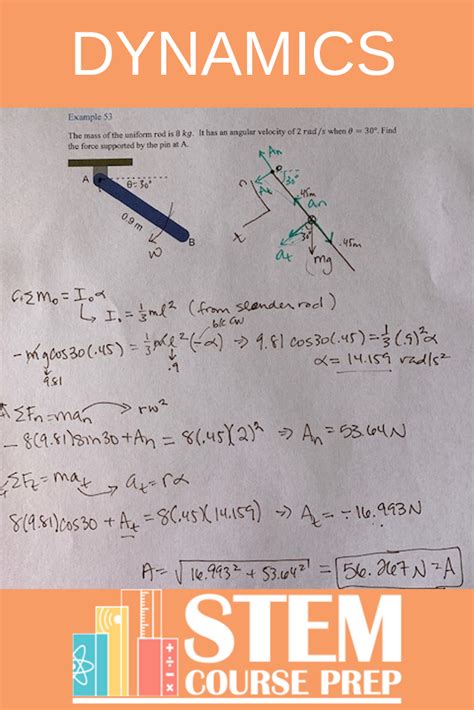 DYNAMICS
Example 53
The mass of the uniform rod is 8 kg. It has an angular velocity of 2 rad/s when θ = 30°. Find
the force supported by the pin at A.
A
θ=30°
0.9 m
ω
B
An
At
30°
.45m
an
n
x
30°
at
mg
.45m
ΣMo = Ioα
↳ Io = 1/3 ml² (from slender rod)
b/c CW
-mgcos30(.45) = 1/3 ml²(-α) ⇒ 9.81 cos30(.45) = 1/3(.9)²α
9.81
.9
α = 14.159 rad/s²
ΣFn = man → rω²
-8(9.81)sin30 + An = 8(.45)(2)² ⇒ An = 53.64N
ΣFt = mat → at = rα
8(9.81)cos30 + At = 8(.45)(14.159) ⇒ At = -16.993N
A = √16.993² + 53.64² = 56.267N = A
STEM
COURSE PREP